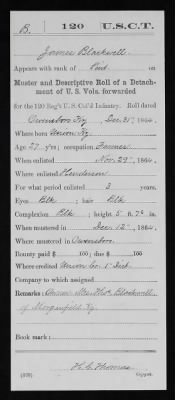 B. 120 U.S.C.T.
James Blackwell
Appears with rank of Pvt. on
Muster and Descriptive Roll of a Detach-
ment of U. S. Vols. forwarded
for the 120 Reg't U. S. Col'd Infantry. Roll dated
Owensboro Ky, Dec. 31, 1864.
Where born Union Co. Ky.
Age 27 y'rs; occupation Farmer
When enlisted Nov. 29, 1864.
Where enlisted Henderson
For what period enlisted 3 years.
Eyes Blk; hair Blk
Complexion Blk; height 5 ft. 7 in.
When mustered in Dec. 12, 1864.
Where mustered in Owensboro.
Bounty paid $ 100; due $ 100
Where credited Union Co. 1" Dist.
Company to which assigned
Remarks: Owner Mrs. Blackwell
of Morganfield Ky.
Book mark:
Thomas
(339) Copyist.